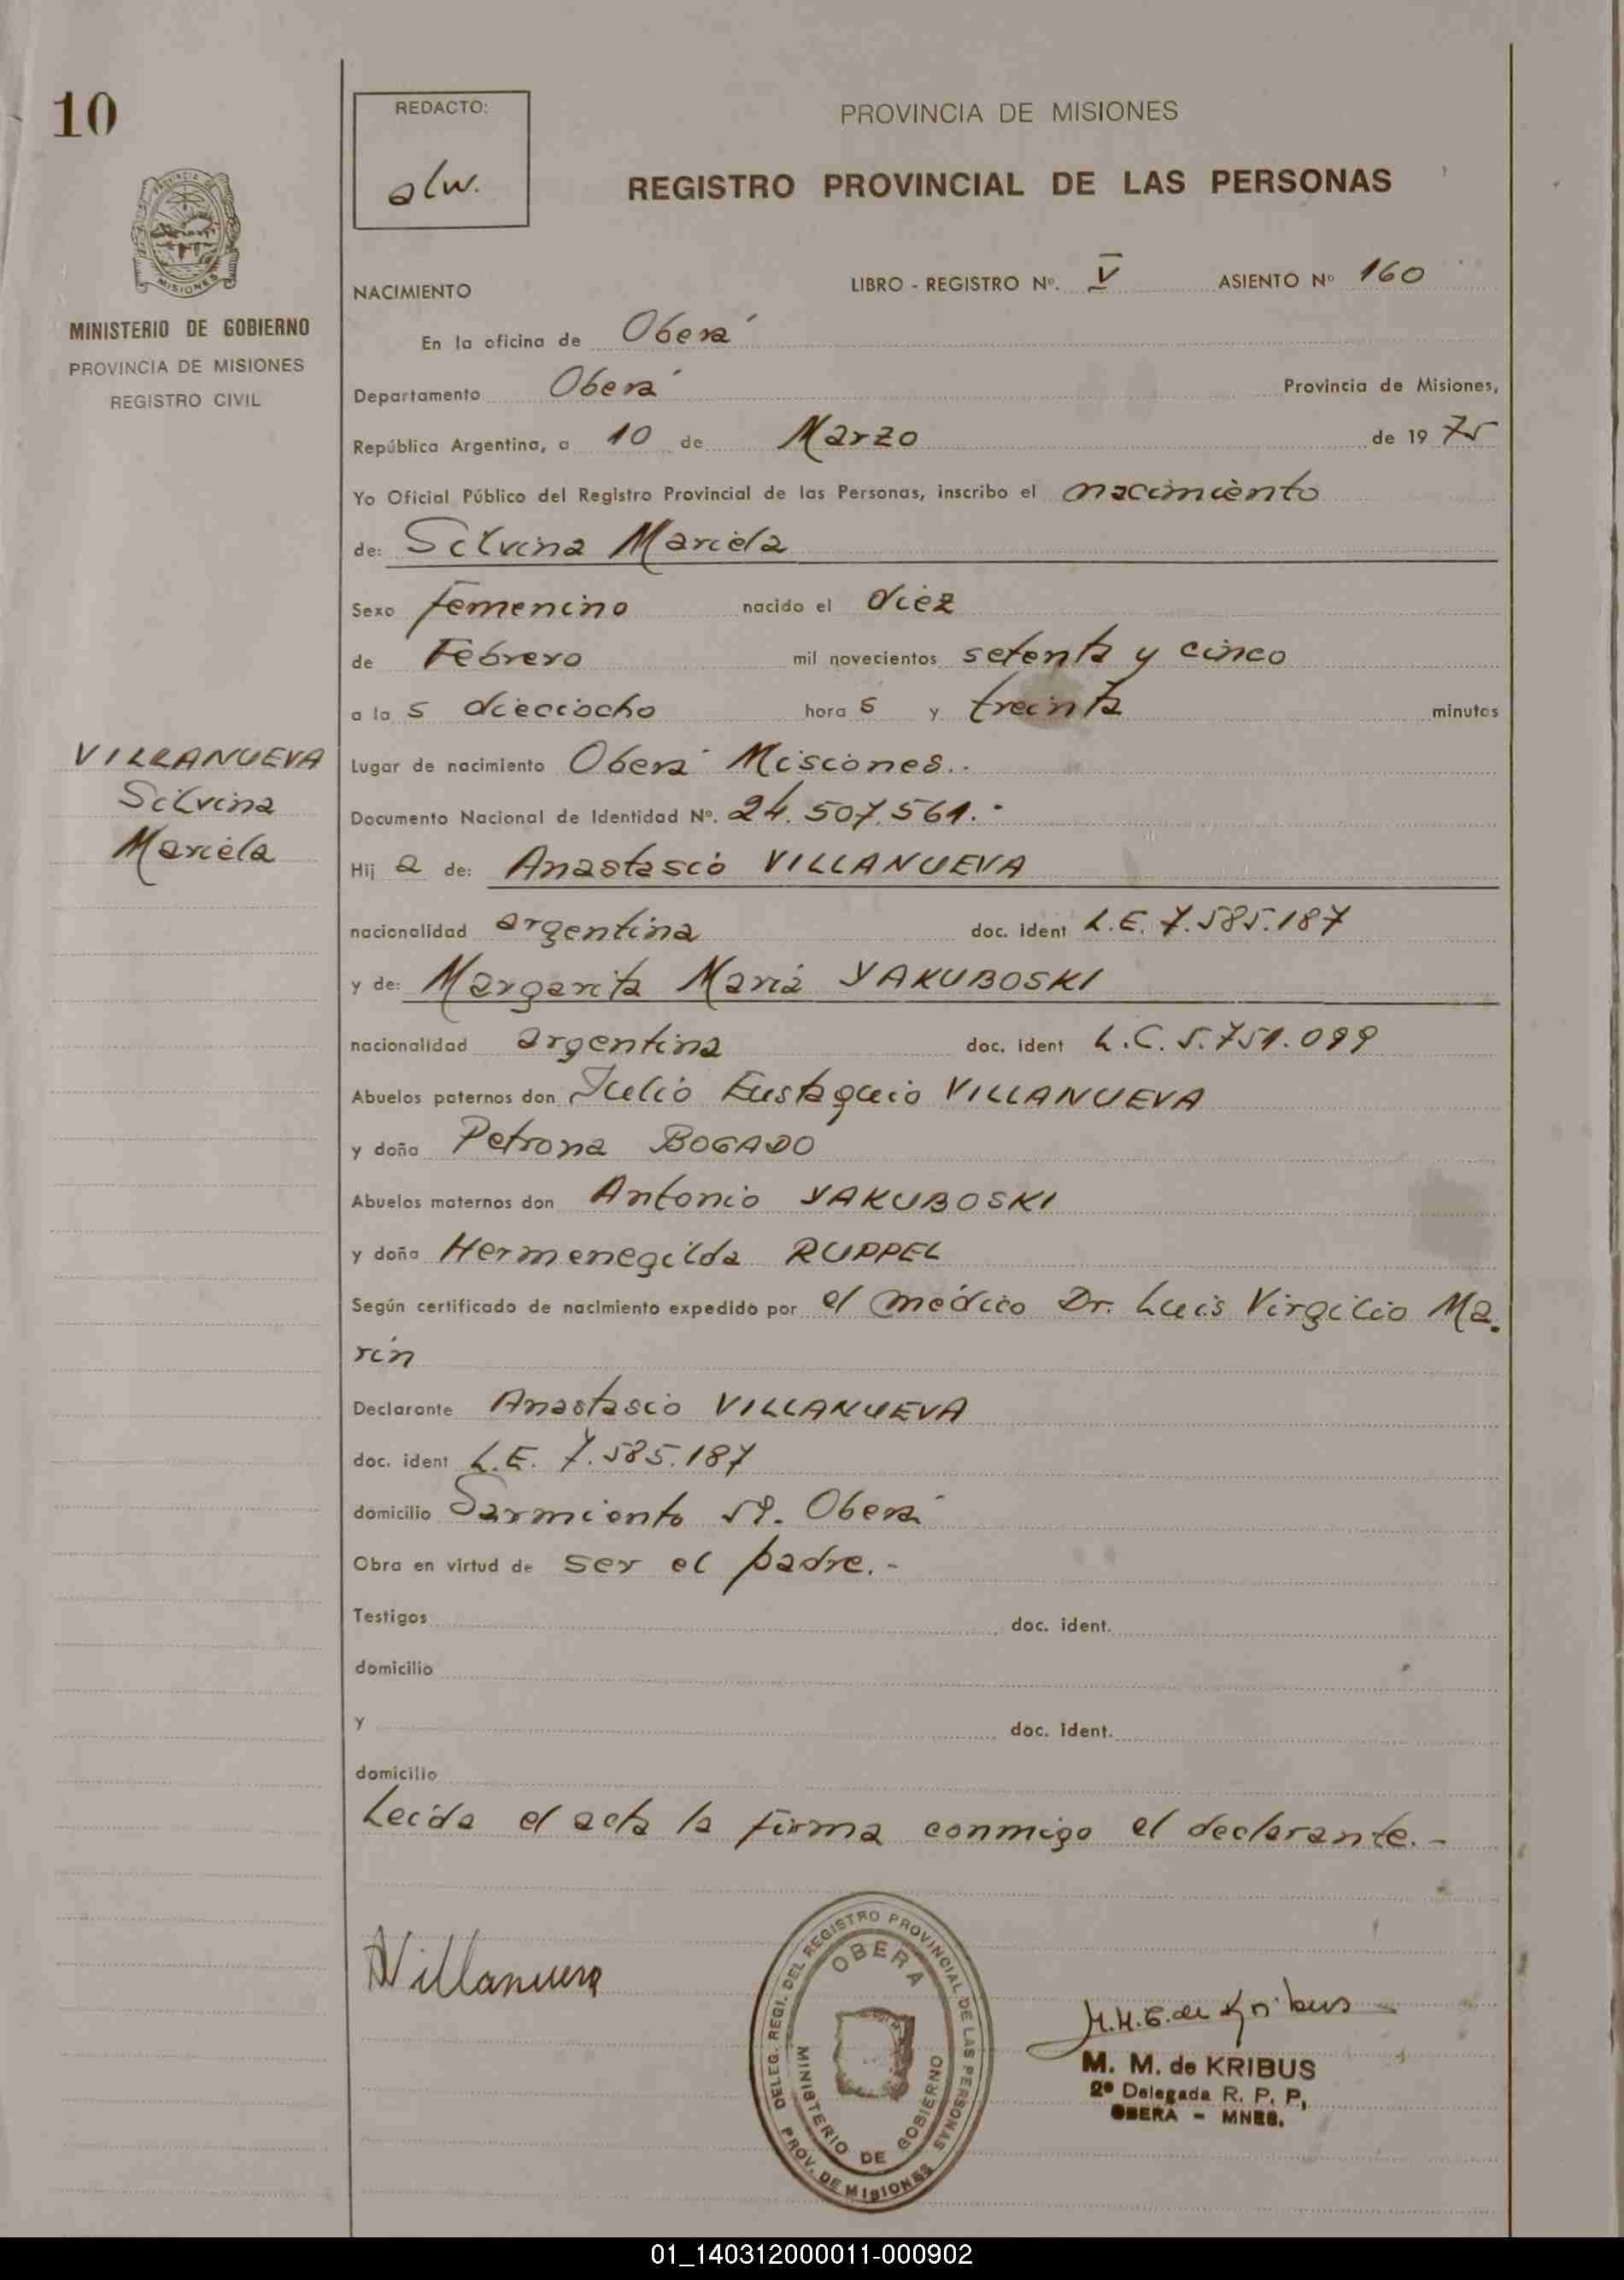 10
REDACTO:
alw.
PROVINCIA DE MISIONES
REGISTRO PROVINCIAL DE LAS PERSONAS
PROVINCIA DE
MISIONES
MINISTERIO DE GOBIERNO
PROVINCIA DE MISIONES
REGISTRO CIVIL
NACIMIENTO LIBRO - REGISTRO Nº. V ASIENTO Nº 160
En la oficina de Oberá
Departamento Oberá Provincia de Misiones,
República Argentina, a 10 de Marzo de 19 75
Yo Oficial Público del Registro Provincial de las Personas, inscribo el nacimiento
de: Silvina Mariela
Sexo femenino nacido el diez
de Febrero mil novecientos setenta y cinco
a la s dieciocho hora s y treinta minutos
VILLANUEVA
Silvina
Mariela
Lugar de nacimiento Oberá Misiones.-
Documento Nacional de Identidad Nº. 24.507.561.-
Hij a de: Anastasio VILLANUEVA
nacionalidad argentina doc. ident L.E. 7.585.187
y de: Margarita María YAKUBOSKI
nacionalidad argentina doc. ident L.C. 5.751.099
Abuelos paternos don Julio Eustaquio VILLANUEVA
y doña Petrona BOGADO
Abuelos maternos don Antonio YAKUBOSKI
y doña Hermenegilda RUPPEL
Según certificado de nacimiento expedido por el médico Dr. Luis Virgilio Ma-
rin
Declarante Anastasio VILLANUEVA
doc. ident L.E. 7.585.187
domicilio Sarmiento 59. Oberá
Obra en virtud de ser el padre.-
Testigos doc. ident.
domicilio
y doc. ident.
domicilio
Leida el acta la firma conmigo el declarante.-
AVillanueva
DELEG. REGI. DEL REGISTRO PROVINCIAL DE LAS PERSONAS
OBERA
MINISTERIO DE GOBIERNO
PROV. DE MISIONES
M.M.G. de Kribus
M. M. de KRIBUS
2ª Delegada R. P. P,
OBERA - MNES.
01_140312000011-000902